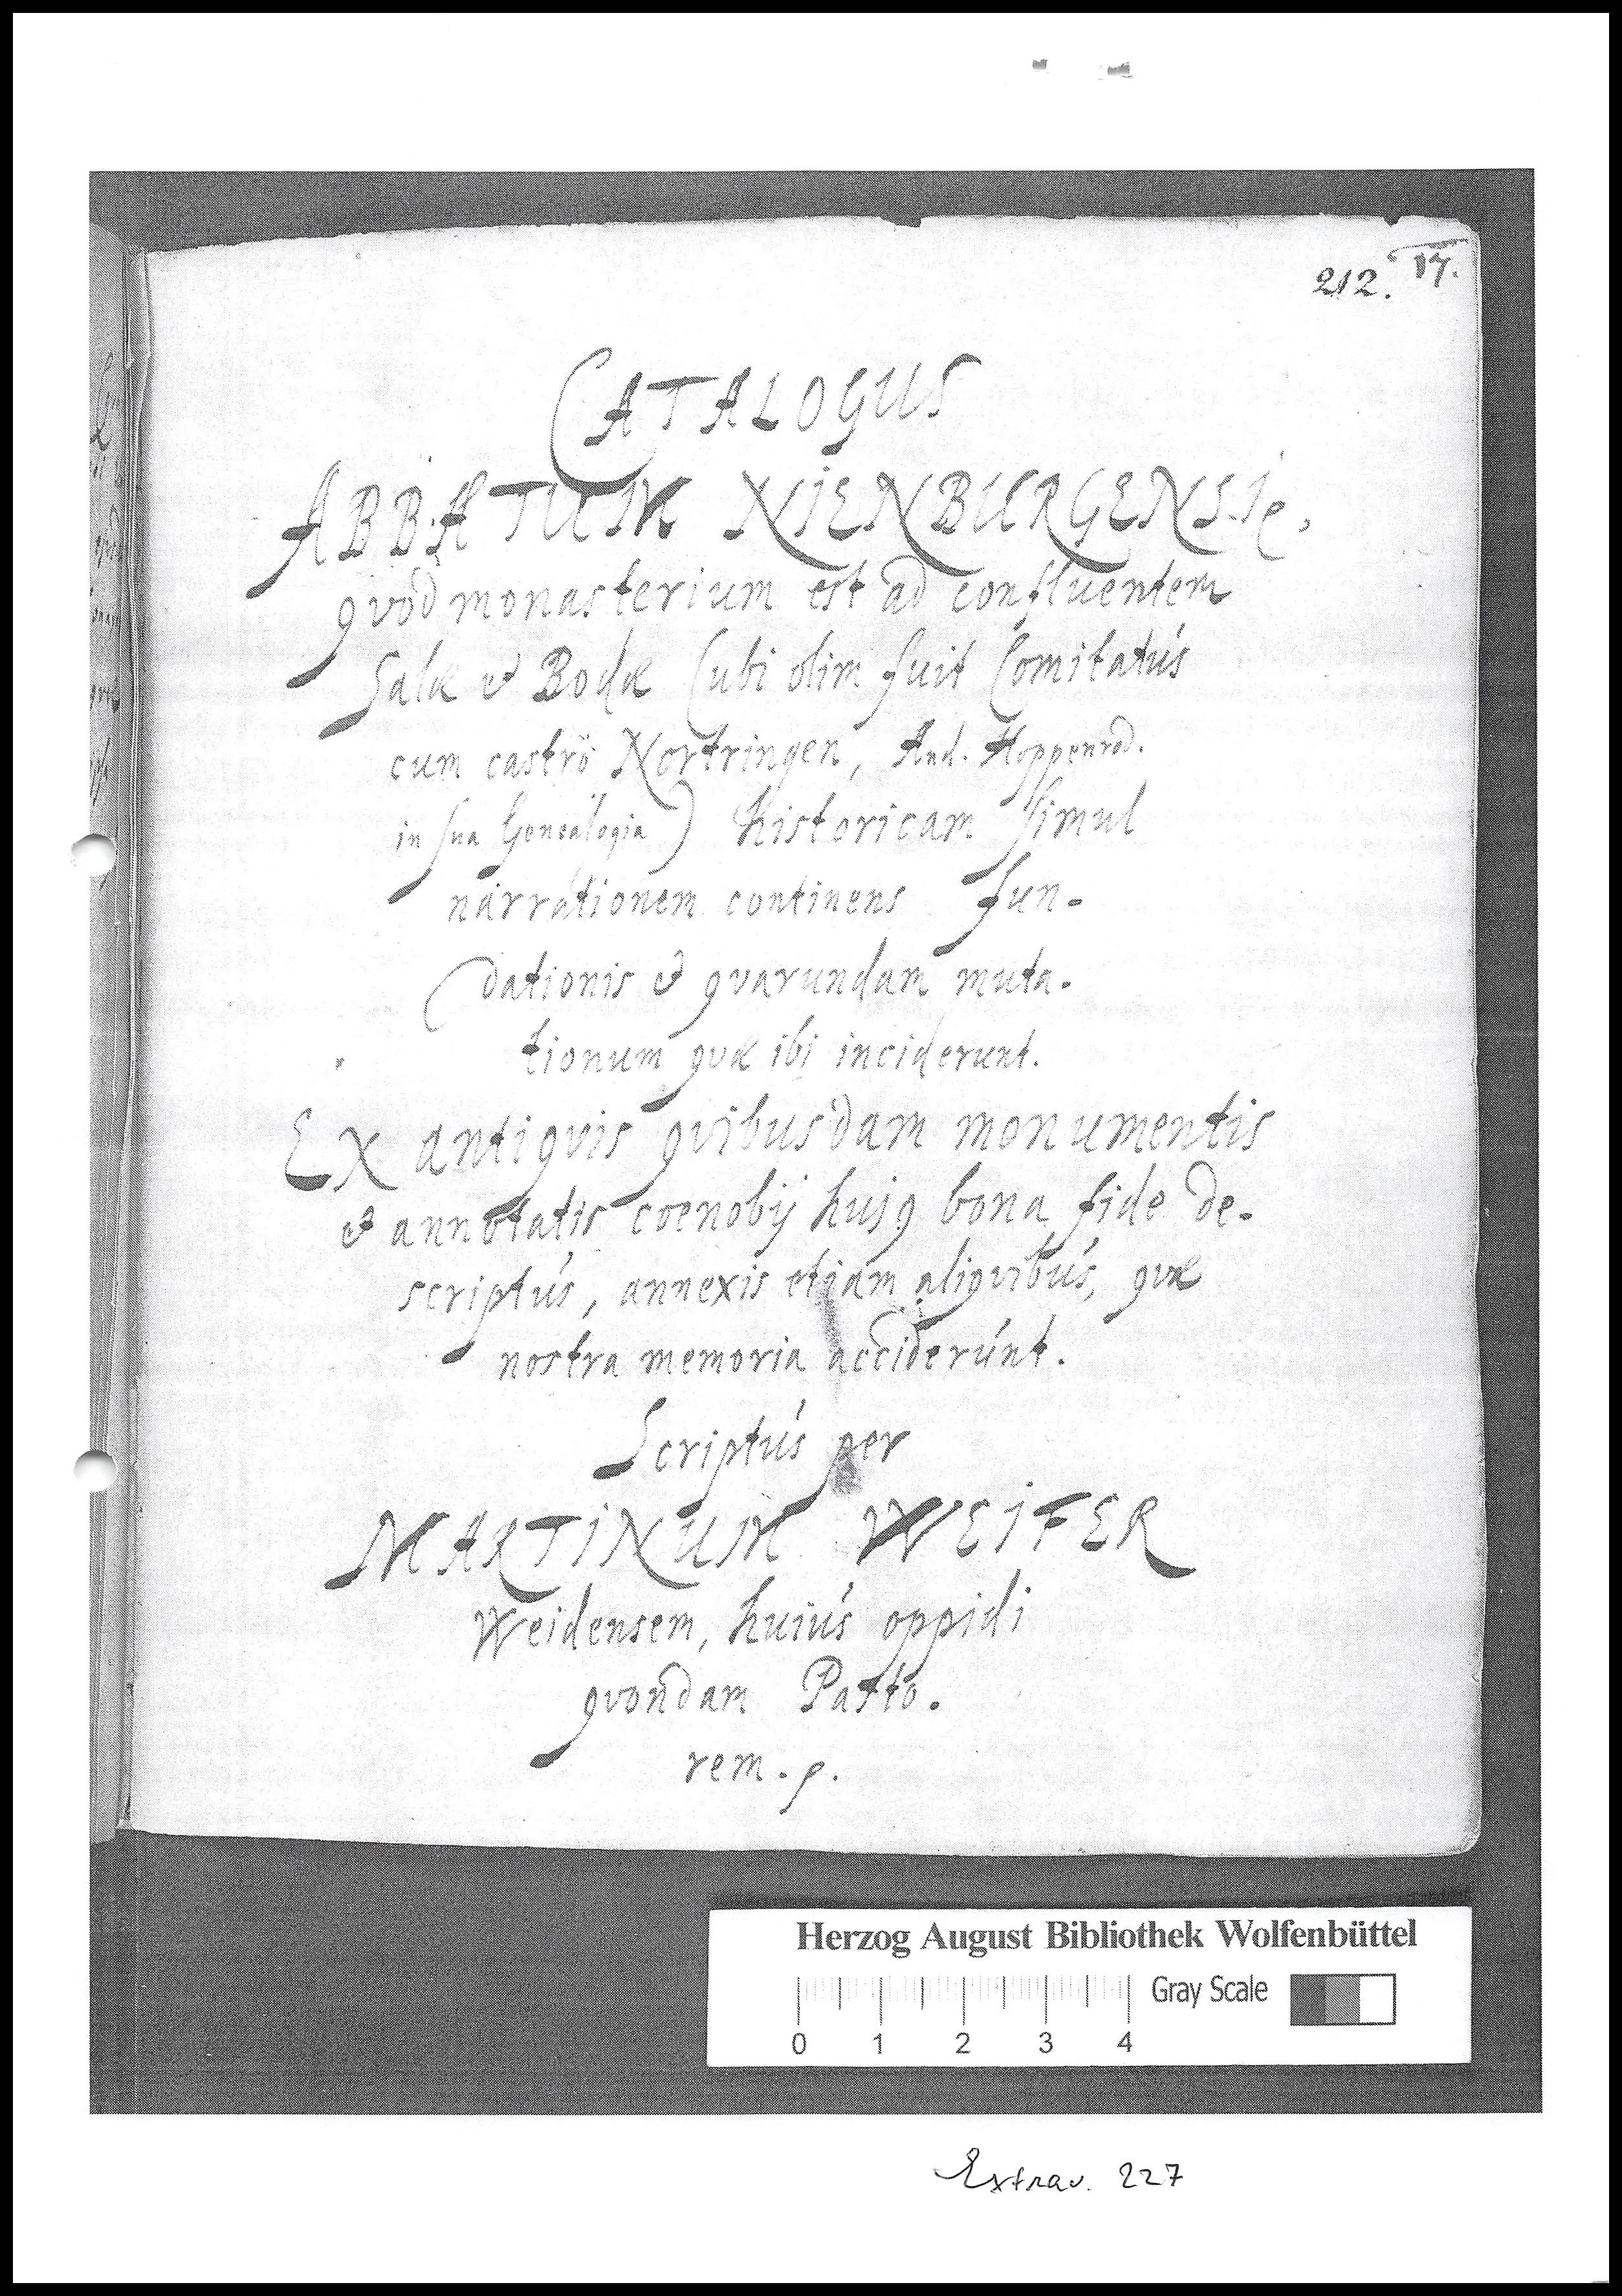 212. 17.
CATALOGUS
ABBATUM NIENBURGENSIũ,
qvod monasterium est ad confluentem
Salæ et Bodæ (ubi olim fuit Comitatús
cum castrô Nortringen, And. Hoppenrod.
in sua Genealogia) historicam simul
narrationem continens fun-
dationis et qvarundam muta-
tionum qvæ ibi inciderunt.
Ex antiqvis qvibusdam monumentis
et annotatis coenobij hujq bona fide de-
scriptús, annexis etiam aliqvibús, qvæ
nostra memoria acciderúnt.
Scriptús per
MARTINUM WEISER
Weidensem, huiús oppidi
qvondam Pasto-
rem. p.
Herzog August Bibliothek Wolfenbüttel
Gray Scale
0 1 2 3 4
Extrav. 227